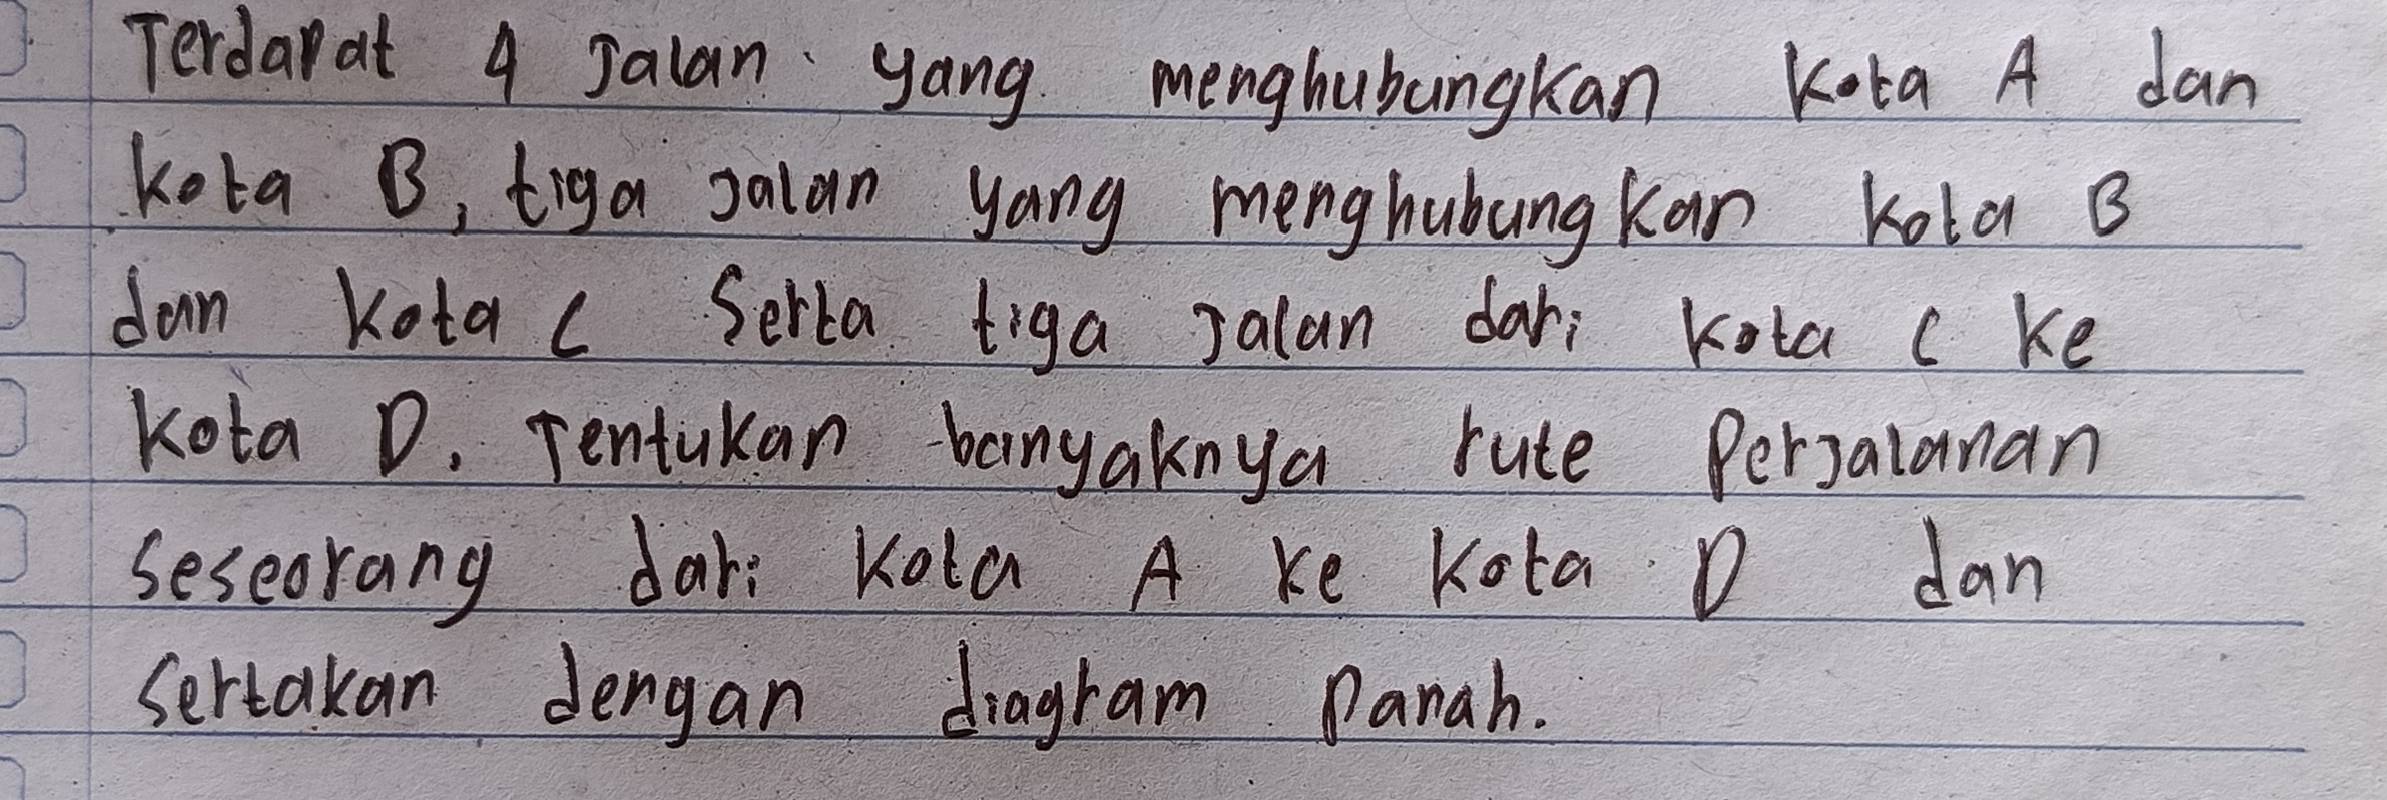 Terdapat 4 Jalan yang menghubungkan Kota A dan
kota B, tiga jalan yang menghubungkan kota B
dan kota C Serta tiga jalan dari kota C ke
kota D. Tentukan banyaknya rute Perjalanan
seseorang dari kota A ke kota D dan
sertakan dengan diagram Panah.